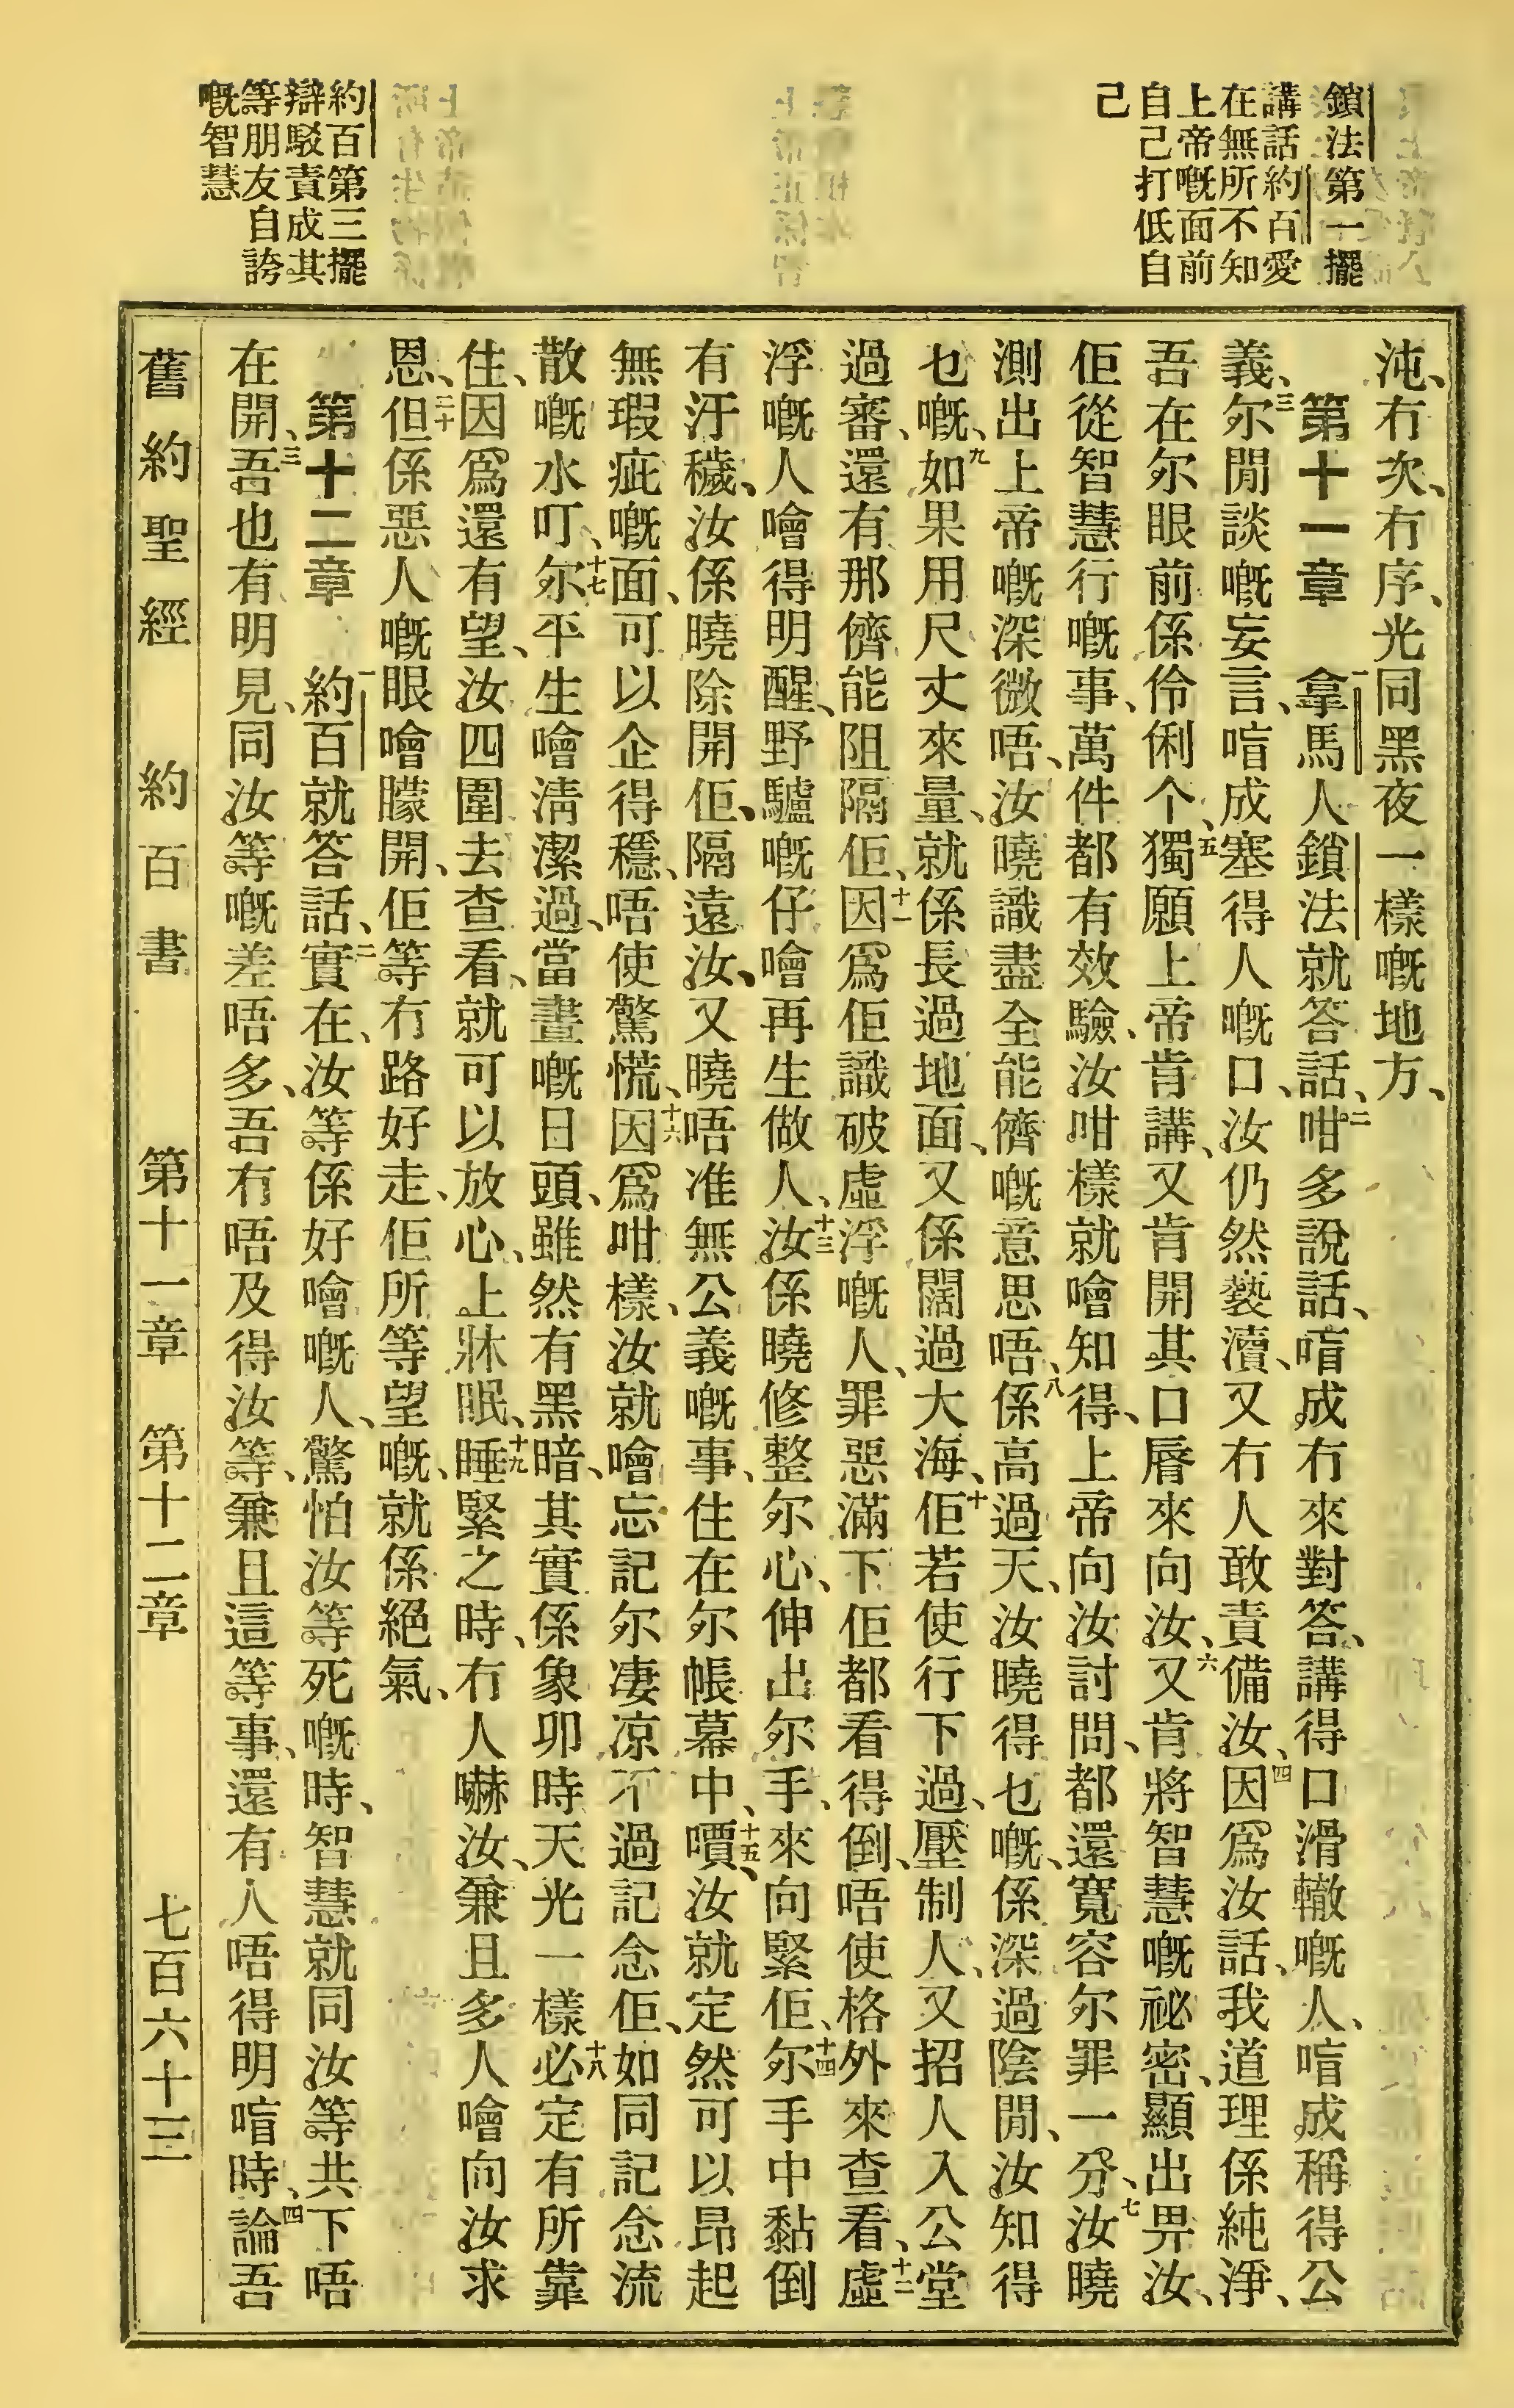 鎖法第一擺
講話約百愛
在無所不知
上帝嘅面前
自己打低自
己
約百第三擺
辯駁責成其
等朋友自誇
嘅智慧
沌、冇次、冇序、光同黑夜一樣嘅地方、
第十一章 一拿馬人鎖法就答話、二咁多說話、喑成冇來對答、講得口滑轍嘅人、喑成稱得公
義、三尔閒談嘅妄言、喑成塞得人嘅口、汝仍然褻瀆、又冇人敢責備汝、四因爲汝話、我道理係純淨、
吾在尔眼前係伶俐个、五獨願上帝肯講、又肯開其口脣來向汝、六又肯將智慧嘅祕密、顯出畀汝、
佢從智慧行嘅事、萬件都有效驗、汝咁樣就噲知得、上帝向汝討問、都還寬容尔罪一分、七汝曉
測出上帝嘅深微唔、汝曉識盡全能儕嘅意思唔、八係高過天、汝曉得乜嘅、係深過陰間、汝知得
乜嘅、九如果用尺丈來量、就係長過地面、又係闊過大海、十佢若使行下過、壓制人、又招人入公堂
過審、還有那儕能阻隔佢、十一因爲佢識破虛浮嘅人、罪惡滿下佢都看得倒、唔使格外來查看、十二虛
浮嘅人噲得明醒、野驢嘅仔噲再生做人、十三汝係曉修整尔心、伸出尔手、來向緊佢、十四尔手中黏倒
有汙穢、汝係曉除開佢、隔遠汝、又曉唔准無公義嘅事、住在尔帳幕中、十五嘳、汝就定然可以昂起
無瑕疵嘅面、可以企得穩、唔使驚慌、十六因爲咁樣、汝就噲忘記尔凄凉、不過記念佢、如同記念流
散嘅水叮、十七尔平生噲淸潔過、當晝嘅日頭、雖然有黑暗、其實係象卯時天光一樣、十八必定有所靠
住、因爲還有望、汝四圍去查看、就可以放心、上牀眠、十九睡緊之時、冇人嚇汝、兼且多人噲向汝求
恩、二十但係惡人嘅眼噲矇開、佢等冇路好走、佢所等望嘅、就係絕氣、
第十二章 一約百就答話、二實在、汝等係好噲嘅人、驚怕汝等死嘅時、智慧就同汝等共下唔
在開、三吾也有明見、同汝等嘅差唔多、吾冇唔及得汝等、兼且這等事、還有人唔得明喑時、四論吾
舊約聖經 約百書 第十一章 第十二章 七百六十三